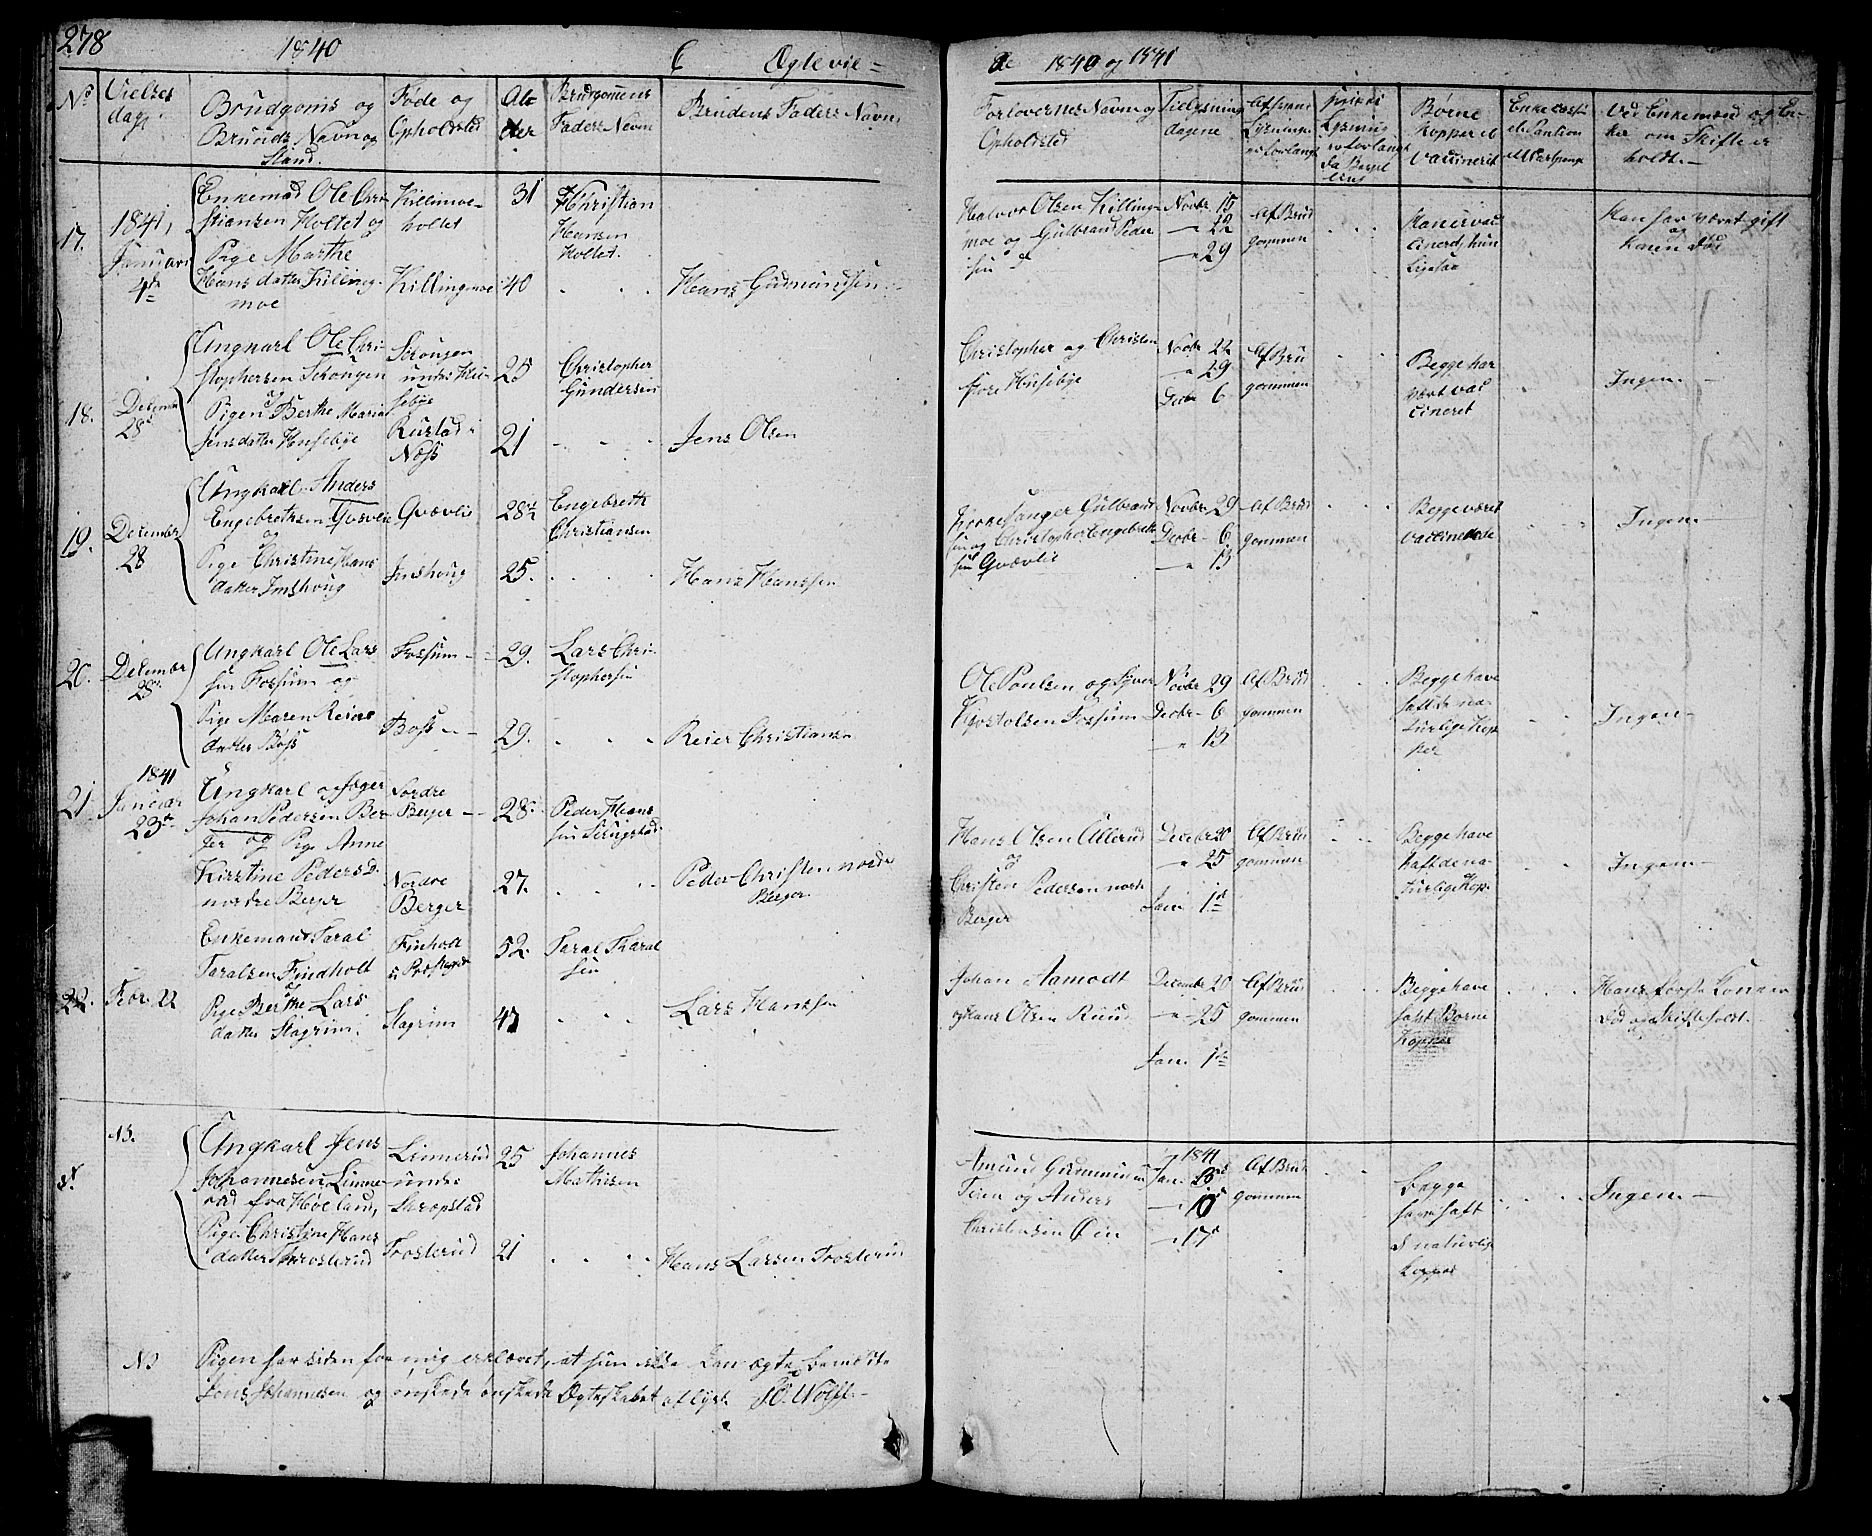 278
1840
Ægtevie=
de 1840 og 1841
No
Vielses
dag
Brudgoms og
Bruds Navn og
Stand.
Føde og
Opholdsted
Al=
der
Brudgomens
Faders Navn
Brudens Faders Navn
Forlovernes Navn og
Opholdsted
Tillysnings
dagene
Børne
Kopper el
Vaccineret
Ved Enkemænd og En-
ker om Skifte er
holdt.
17.
1841,
Januari
4de
Enkemad Ole Chri
stiansen Holtet og
Pige Marthe
Hans datter Killing
moe
Killimoe-
holtet
Killingmoe
31
40
Christian
Hansen
Holtet.
Hans Gudmundsen
Halvor Olsen Killing
moe og Gulbrand Peder
sen
Novbr 15
22
29
Af Brud
gommen
Han er vac
cineret, hun
ligesaa
Han har været gift
og
Konen død
18.
Decembr
28d
Ungkarl Ole Chri-
stophersen Scrougen
og
Pigen Berthe Maria
Jensdatter Husebye
Scrougen
under Hu-
sebye
Rustad i
Næss
25
21
Christopher
Gundersen
Jens Olsen
Christopher og Christen
Husebye
Novbr 22
29
Decbr 6
Af Bru
gommen
Begge har
vært vac
cineret
Ingen
19.
December
28
Ungkarl Anders
Engebrethsen Qvævlie
og
Pige Christine Hans
datter Imshoug
Qvævlie
Imshoug
28½
25.
Engebreth
Christiansen
Hans Hanssen
Kirkesanger Gulbrand
sen og Christopher Engebreth
sen Qvævlie
Novbr 29
Decbr 6
13
Af Brud
gommen
Begge været
vaccinerede
Ingen
20.
Decemer
28de
Ungkarl Ole Lars
sen Fossum og
Pige Maren Reiers
datter Bøss
Fossum
Bøss
29.
29.
Lars Chri-
stophersen
Reier Christians
Ole Poulsen og Syver
Kjostolsen Fossum
Novbr 29
Decbr 6
13
Af Brud
gommen
Begge have
haft de na
turlige Kop
per
Ingen
21.
1841
Januar
23de
Ungkarl og Jæger
Johan Pedersen Ber
ger og Pige Anne
Kirstine Peders D.
nordre Berger
Nordre
Berger
Nordre
Berger
28
27.
Peder Hans
sen Scrugstad
Peder Christen nordre
Berger
Hans Olsen Ullerud
og
Christen Pedersen nordre
Berger
Decebr 20
25
Jan 1st
Af Brud
gommen
Begge have
haft de na
turlige Kop
Ingen
22.
Febr. 22
Enkemand Taral
Taralsen Findholt
og
Pige Berthe Lars
datter Stagrim
Finholt
Stagrim
52.
Taral Tharal
sen
Lars Hanssen
Johan Aamodt
og Hans Olsen Ruud
Decembr 20
25
Jan. 1ste
Af Brud
gommen
Begge have
haft Børne
Kopper
Hans første Kone er
død og Skifte holdt
NB.
Ungkarl Jens
Johannesen Linne-
rud fra Høeland,
Pige Christine Hans
datter Throsterud
Linnerud
under
Skropstad
Trosterud
25
21
Johannes
Mathisen
Hans Larsen Trosterud
Amund
og Anders
Christensen Øien
1841
Jan
10
17d
Af Brud
gommen
begge
have haft
d naturlige
kopper
Ingen
NB
Pigen har siden for mig erklæret, at hun ikke kan ægte bemeldte
Jens Johannesen og ønskede ønskede Ægteskabet aflyst J. O. Wolff